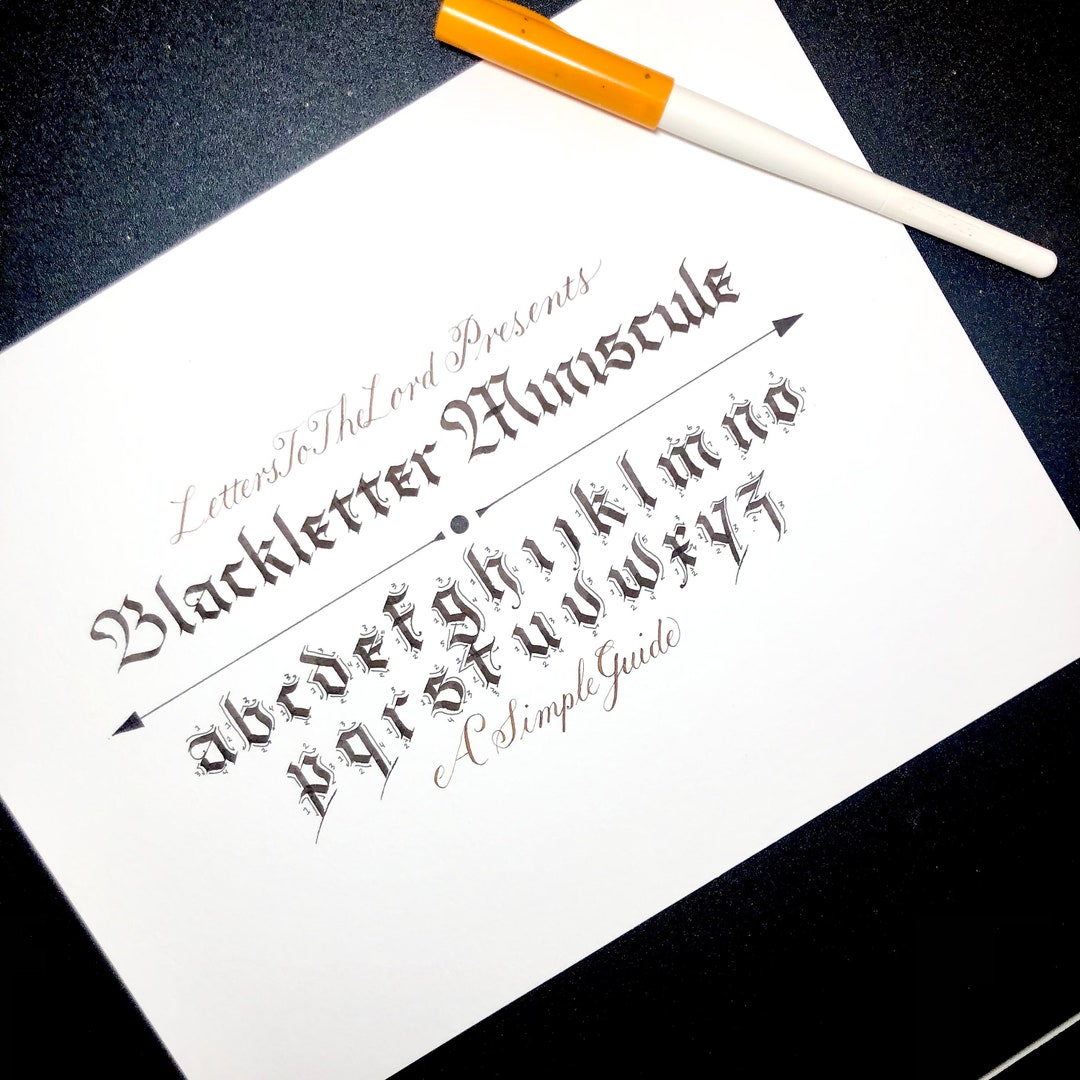 LettersToTheLord Presents
Blackletter Miniscule
a b c d e f g h i j k l m n o
p q r s t u v w x y z
A Simple Guide